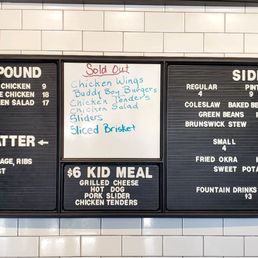 POUND
CHICKEN 9
E CHICKEN 18
N SALAD 17
TTER ←
AGE, RIBS
Sold Out
Chicken Wings
Buddy Boy Burgers
Chicken Tenders
Chicken Salad
Sliders
Sliced Brisket
$6 KID MEAL
GRILLED CHEESE
HOT DOG
PORK SLIDER
CHICKEN TENDERS
SID
REGULAR PIN
4 9
COLESLAW BAKED BE
GREEN BEANS
BRUNSWICK STEW
SMALL
4
FRIED OKRA
SWEET POTA
FOUNTAIN DRINKS
$3